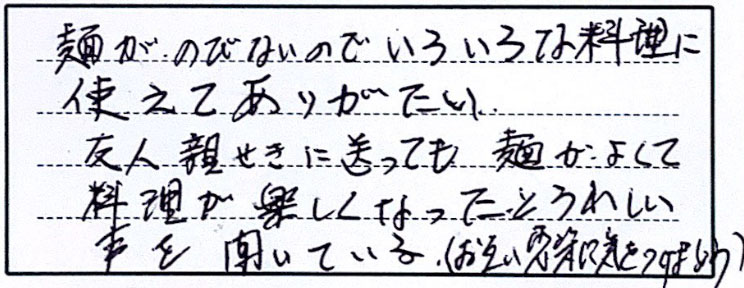 麺がのびないのでいろいろな料理に
使えてありがたい。
友人親せきに送っても麺がよくて
料理が楽しくなったとうれしい
事を聞いている。(お互い感染に気をつけましょう)